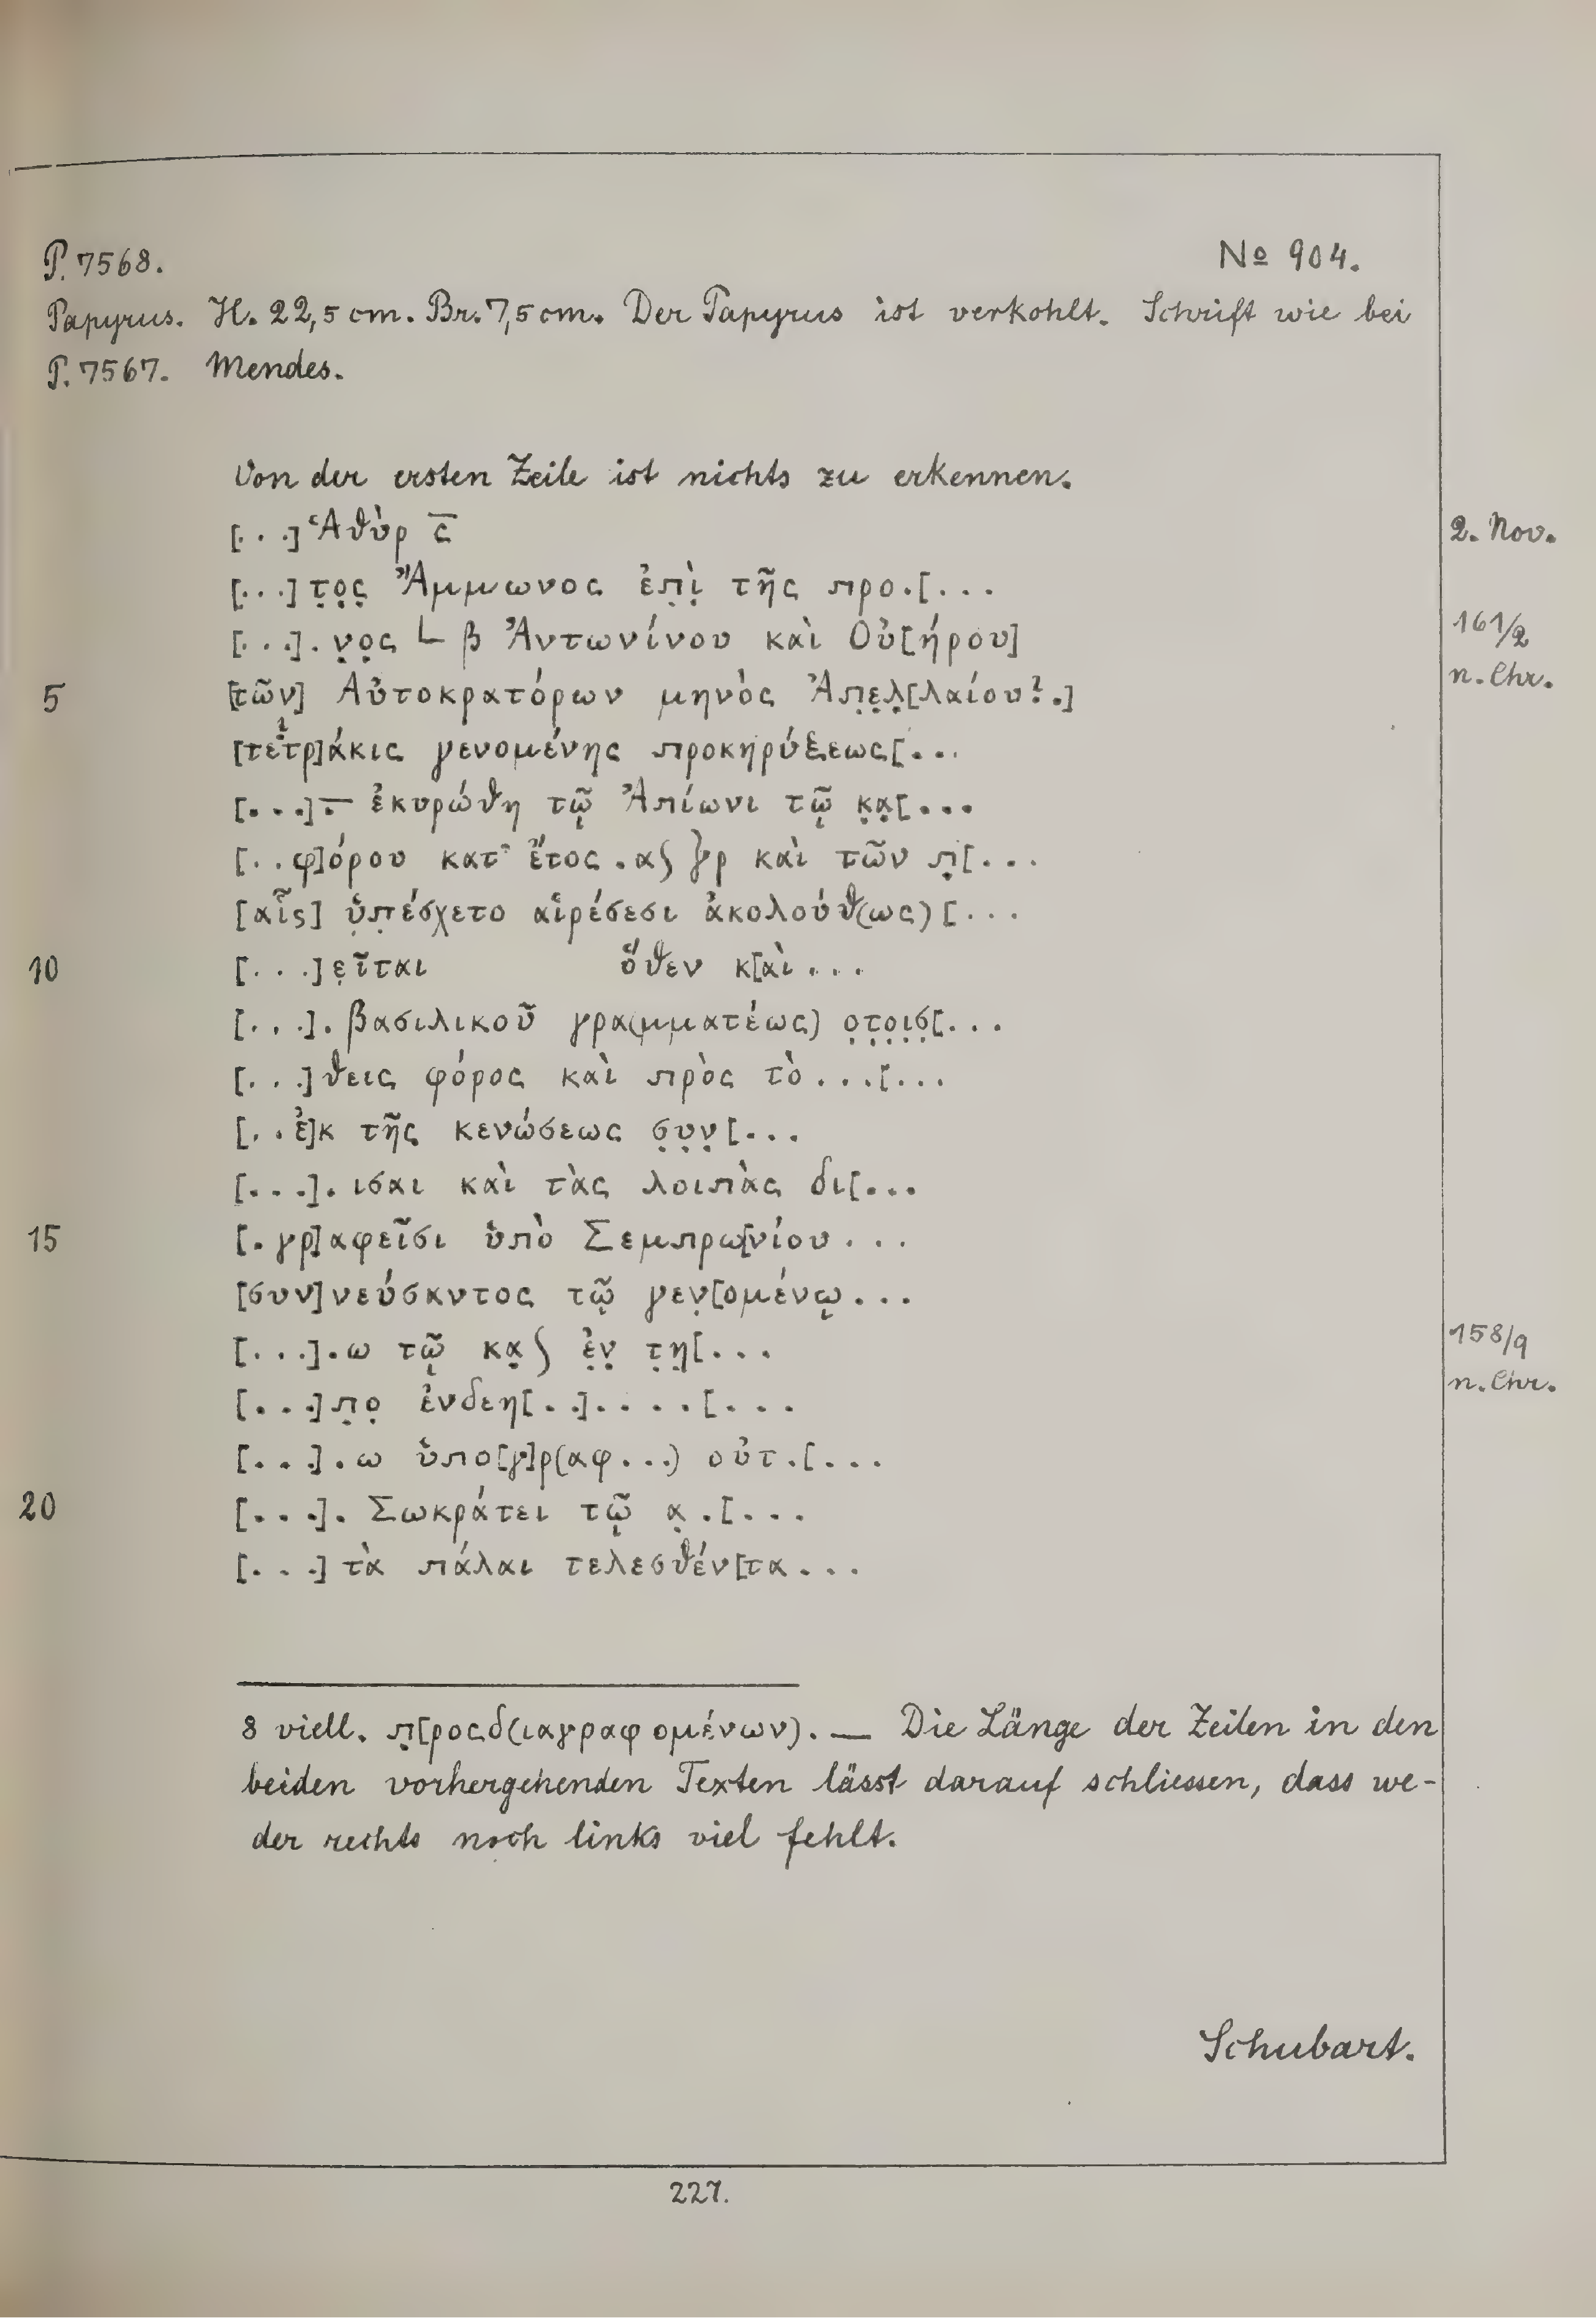 P. 7568. No 904.
Papyrus. H. 22,5 cm. Br. 7,5 cm. Der Papyrus ist verkohlt. Schrift wie bei
P. 7567. Mendes.
Von der ersten Zeile ist nichts zu erkennen.
[. . .] Ἁθὺρ ϛ̅ 2. Nov.
[. . .] τ̣ο̣ς̣ Ἄμμωνος ἐπ̣ὶ̣ τῆς προ.[. . .
[. . .]. ν̣ο̣ς └ β Ἀντωνίνου καὶ Οὐ[ήρου] 161/2
5 [τῶν] Αὐτοκρατόρων μηνὸς Ἀπ̣ε̣λ̣[λαίου?.] n. Chr.
[τετρ]άκις γενομένης προκηρύξεως[. . .
[. . .].— ἐκυρώθη τῷ Ἀπίωνι τῷ κ̣α̣[. . .
[. . φ]όρου κατ' ἔτος .α∫ γρ καὶ τῶν π̣[. . .
[αἷς] ὑ̣π̣έσχετο αἱρέσεσι ἀκολούθ(ως) [. . .
10 [. . .]ε̣ῖται ὅθεν κ[αὶ . . .
[. . .]. βασιλικοῦ γρα(μματέως) ο̣τ̣ο̣ι̣σ̣[. . .
[. . .]θεις φόρος καὶ πρὸς τὸ . . .[. . .
[. . ἐ]κ τῆς κενώσεως σ̣υ̣ν̣[. . .
[. . .]. ισαι καὶ τὰς λοιπὰς δι[. . .
15 [. γρ]αφεῖσι ὑπὸ Σεμπρω[νίου . . .
[συν]νεύσαντος τῷ γεν̣[ομένῳ . . .
[. . .].ω τῷ κα̣∫ ἐ̣ν̣ τ̣η̣[. . . 158/9
n. Chr.
[. . .]π̣ο̣ ἐνδεη[. .]. . . .[. . .
[. . .].ω ὑπο[γ]ρ(αφ. . .) οὐτ.[. . .
20 [. . .]. Σωκράτει τῷ α̣ .[. . .
[. . .] τὰ πάλαι τελεσθέν[τα . . .
8 viell. π̣[ροςδ(ιαγραφομένων). — Die Länge der Zeilen in den
beiden vorhergehenden Texten lässt darauf schliessen, dass we-
der rechts noch links viel fehlt.
Schubart.
227.